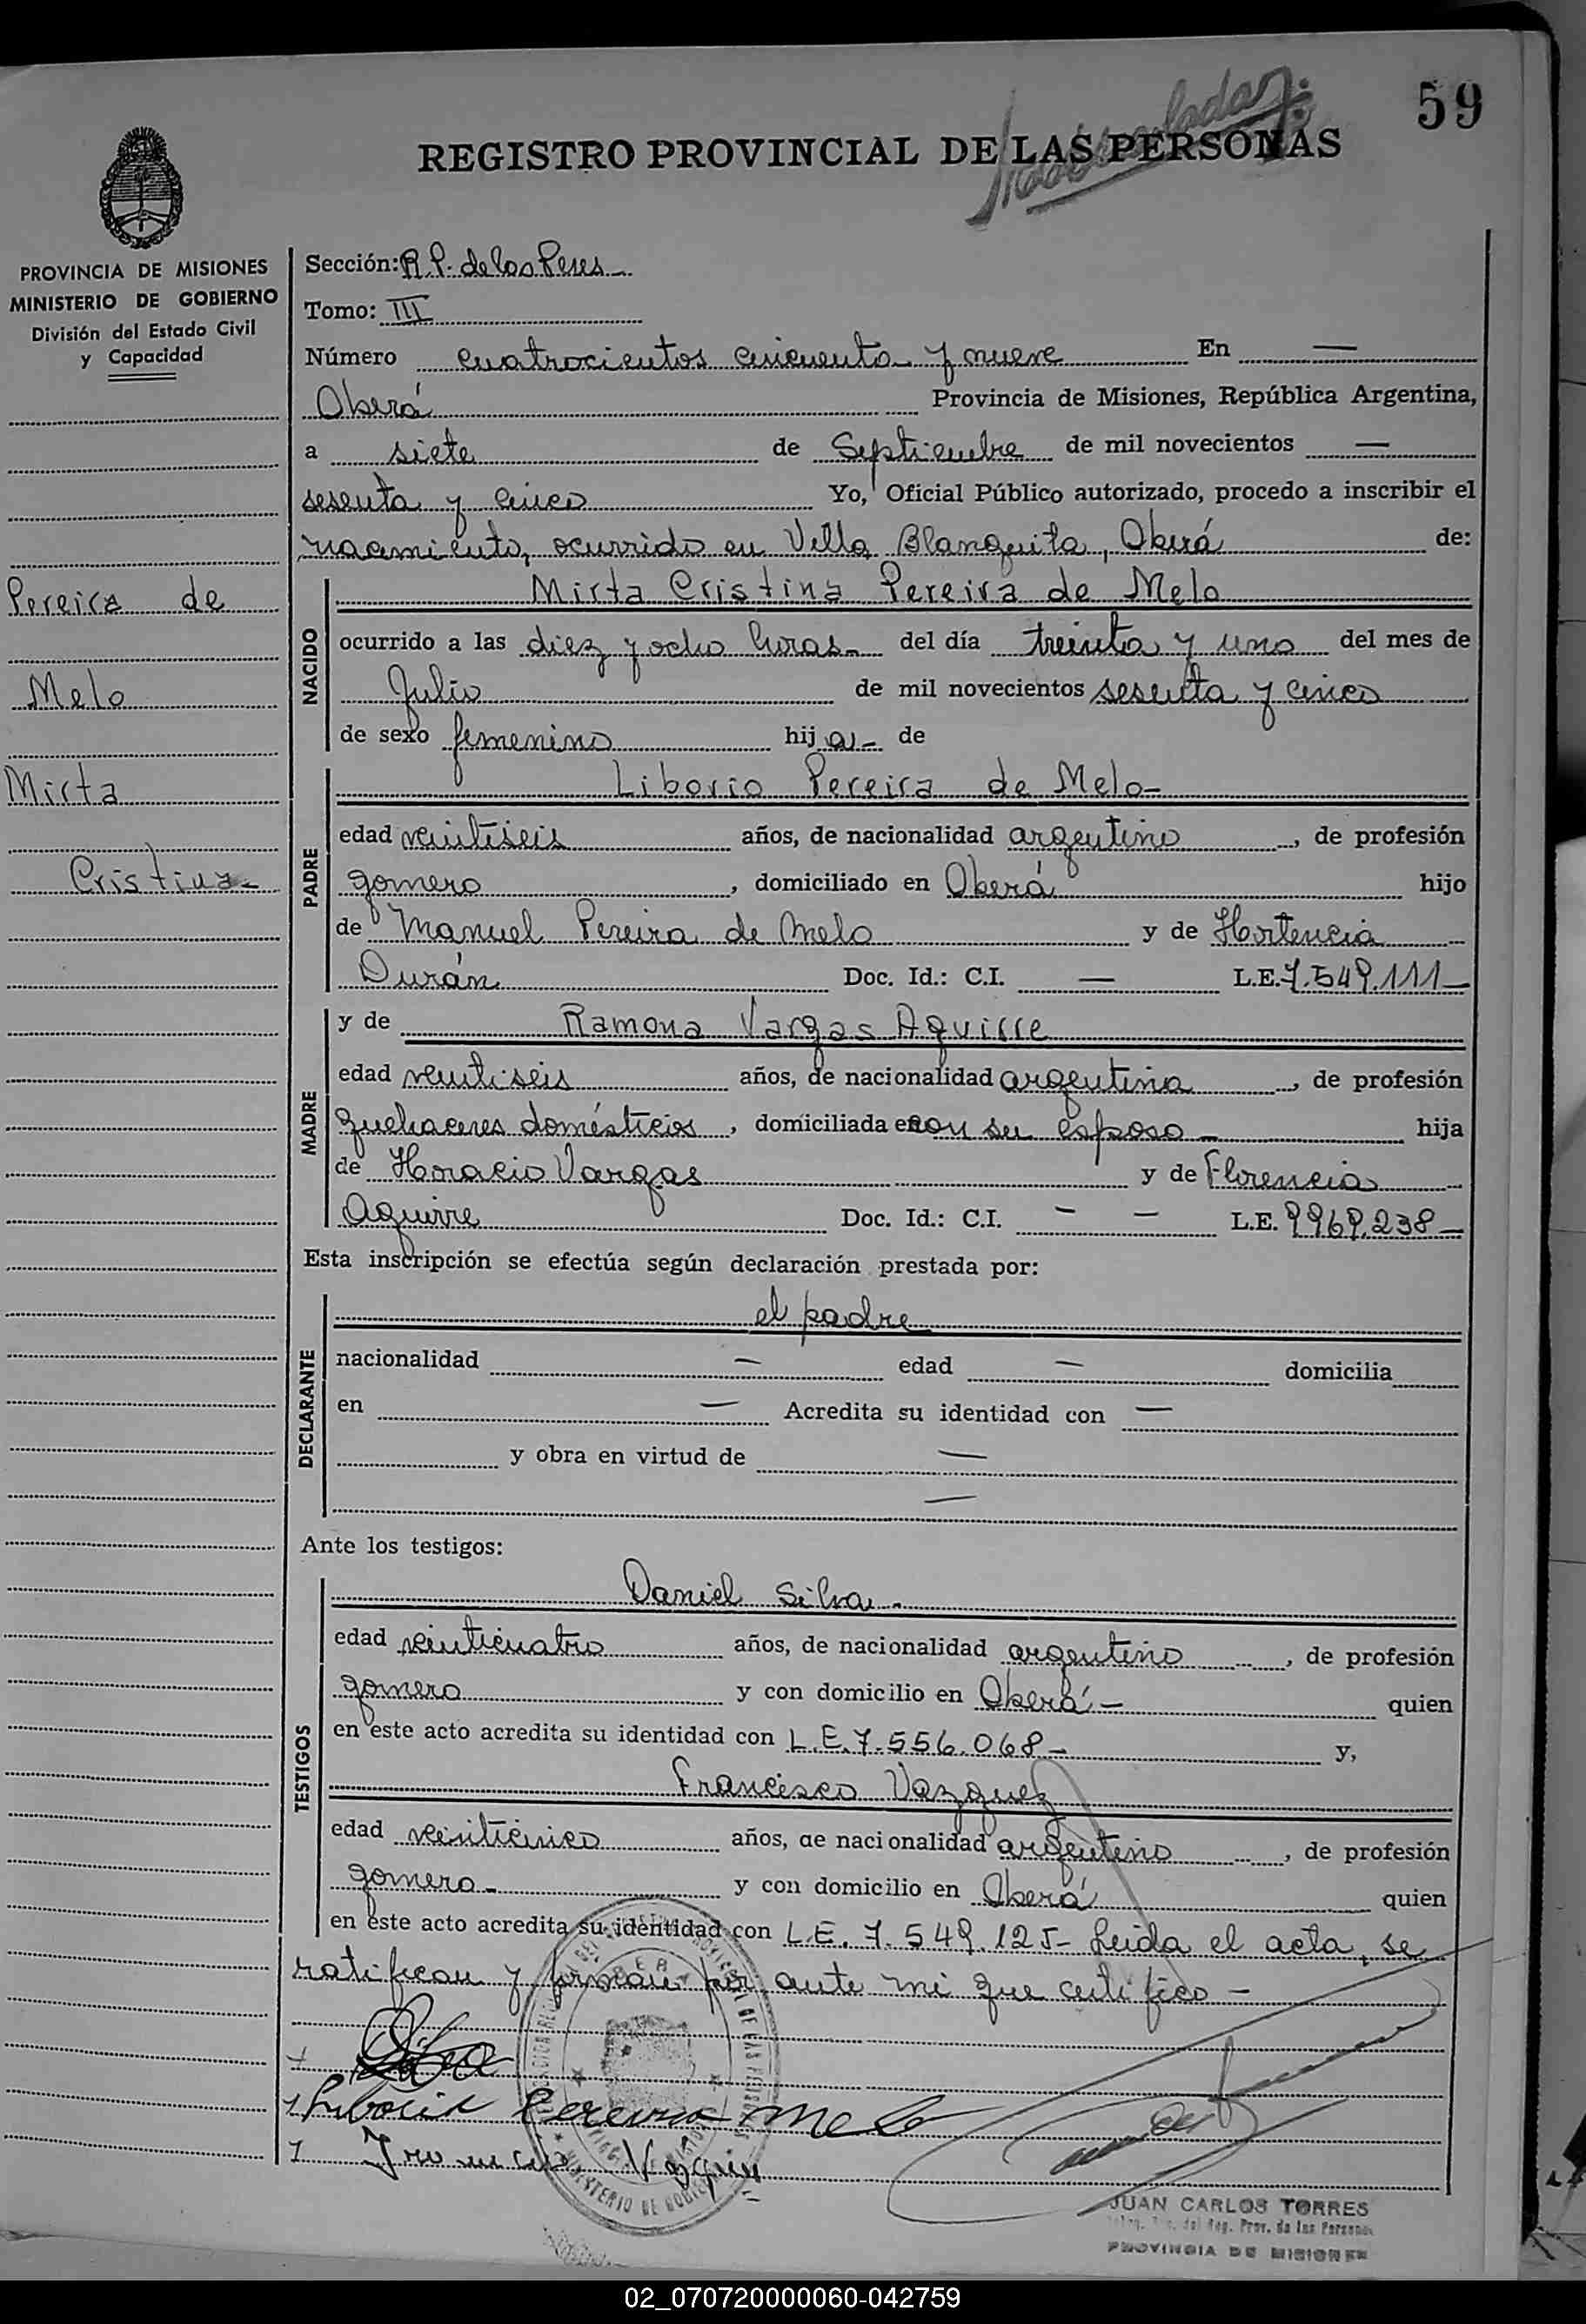 59
REGISTRO PROVINCIAL DE LAS PERSONAS
PROVINCIA DE MISIONES
MINISTERIO DE GOBIERNO
División del Estado Civil
y Capacidad
Pereira de
Melo
Mirta
Cristina-
Sección: R.P. de las Pers.
Tomo: III
Número cuatrocientos cincuenta y nueve En —
Oberá Provincia de Misiones, República Argentina,
a siete de Septiembre de mil novecientos —
sesenta y cinco Yo, Oficial Público autorizado, procedo a inscribir el
nacimiento, ocurrido en Villa Blanquita, Oberá de:
NACIDO
Mirta Cristina Pereira de Melo
ocurrido a las diez y ocho horas- del día treinta y uno del mes de
Julio de mil novecientos sesenta y cinco
de sexo femenino hija- de
PADRE
Liborio Pereira de Melo-
edad veintiseis años, de nacionalidad argentino, de profesión
gomero, domiciliado en Oberá hijo
de Manuel Pereira de Melo y de Hortencia
Durán Doc. Id.: C.I. — L.E. 7.549.111-
MADRE
y de Ramona Vargas Aguirre
edad veintiseis años, de nacionalidad argentina, de profesión
quehaceres domésticos, domiciliada en con su esposo- hija
de Horacio Vargas y de Florencia
Aguirre Doc. Id.: C.I. — — L.E. 9969.238-
Esta inscripción se efectúa según declaración prestada por:
DECLARANTE
el padre
nacionalidad — edad — domicilia
en — Acredita su identidad con —
y obra en virtud de —
—
Ante los testigos:
TESTIGOS
Daniel Silva.-
edad veinticuatro años, de nacionalidad argentino, de profesión
gomero y con domicilio en Oberá- quien
en este acto acredita su identidad con L.E. 7.556.068- y,
Francisco Vazquez
edad veinticinco años, de nacionalidad argentino, de profesión
gomero- y con domicilio en Oberá quien
en este acto acredita su identidad con L.E. 7.549.125- Leida el acta, se
ratifican y firman por ante mi que certifico-
Silva
Liborio Pereira Melo
JUAN CARLOS TORRES
Reg. Prov. de las Personas
PROVINCIA DE MISIONES
02_070720000060-042759